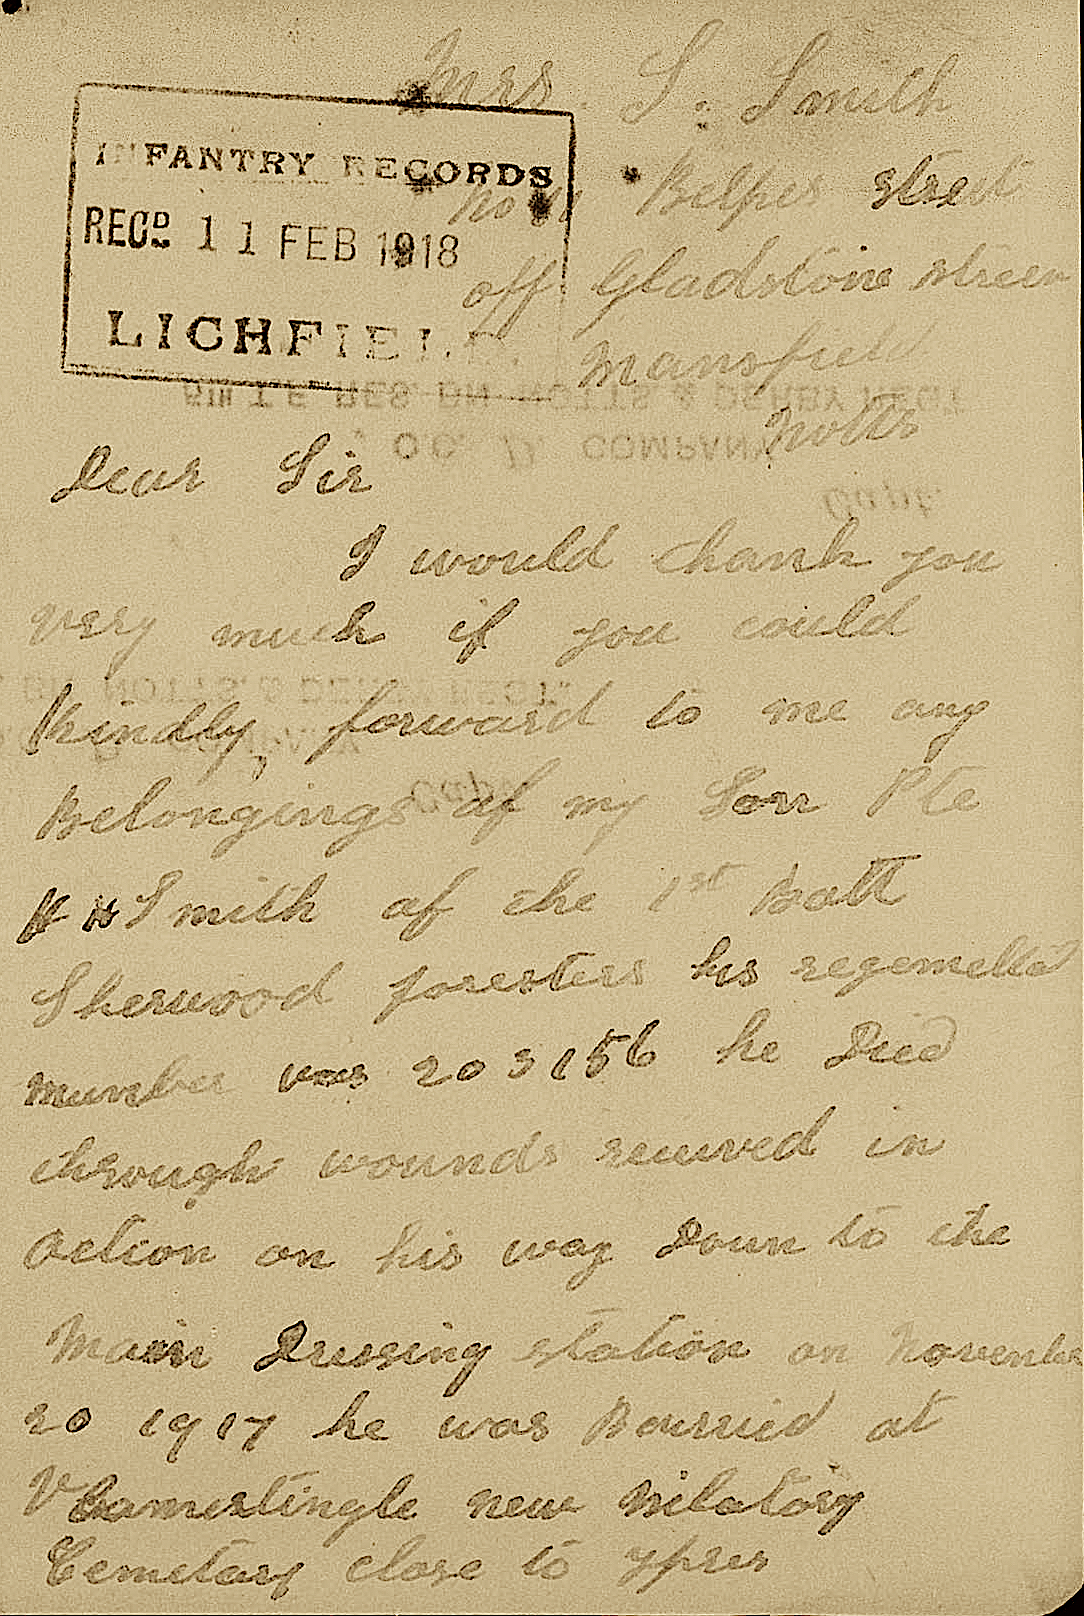 Mrs S. Smith
INFANTRY RECORDS
RECD. 11 FEB 1918
LICHFIELD
No Belper street
off Gladstone street
Mansfield
Notts
5TH T. F. RES. BN NOTTS & DERBY REGT
O.C. D COMPANY
Capt.
Dear Sir
I would thank you
very much if you could
BN NOTTS. & DERBY REGT.
kindly, forward to me any
COMPANY
Capt
Belongings of my Son Pte
H Smith of the 1st Batt
Sherwood foresters his regemellal
number was 203156 he Died
through wounds recived in
action on his way Down to the
Main Dressing station on November
20 1917 he was Burried at
Vlamestingle new Milatory
Cemetary close to ypres